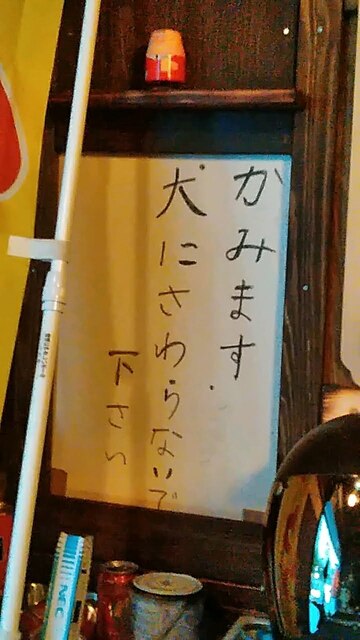 かみます.
犬にさわらないで
下さい
NEC